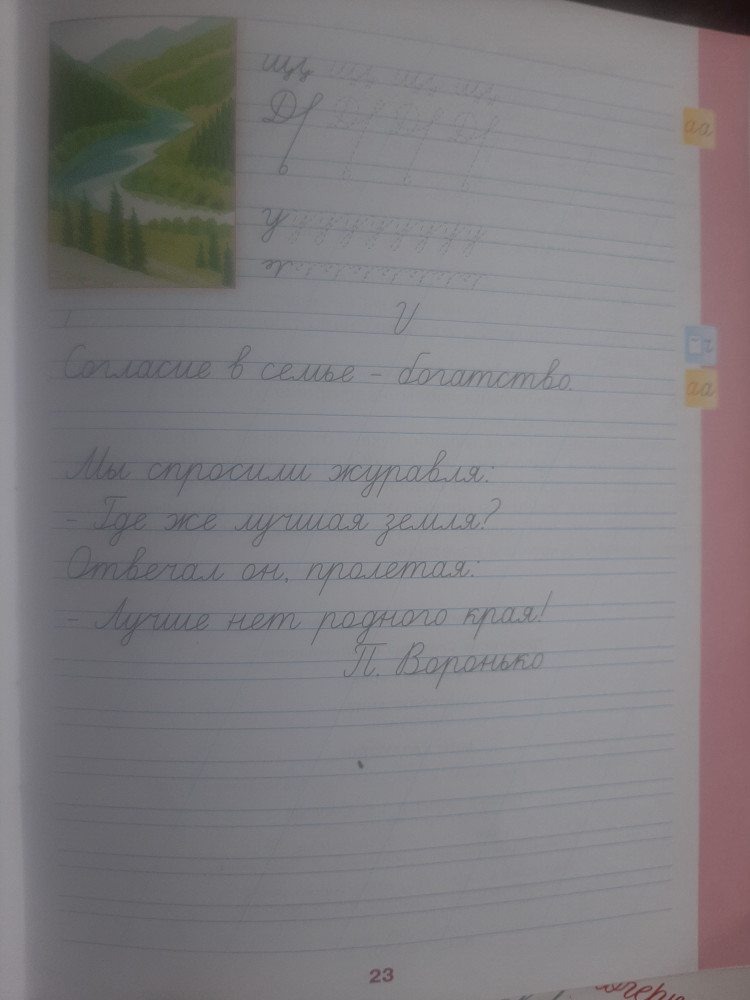 У
Согласие в семье - богатство.
Мы спросили журавля:
- Где же лучшая земля?
Отвечал он, пролетая:
- Лучше нет родного края!
П. Воронько
23